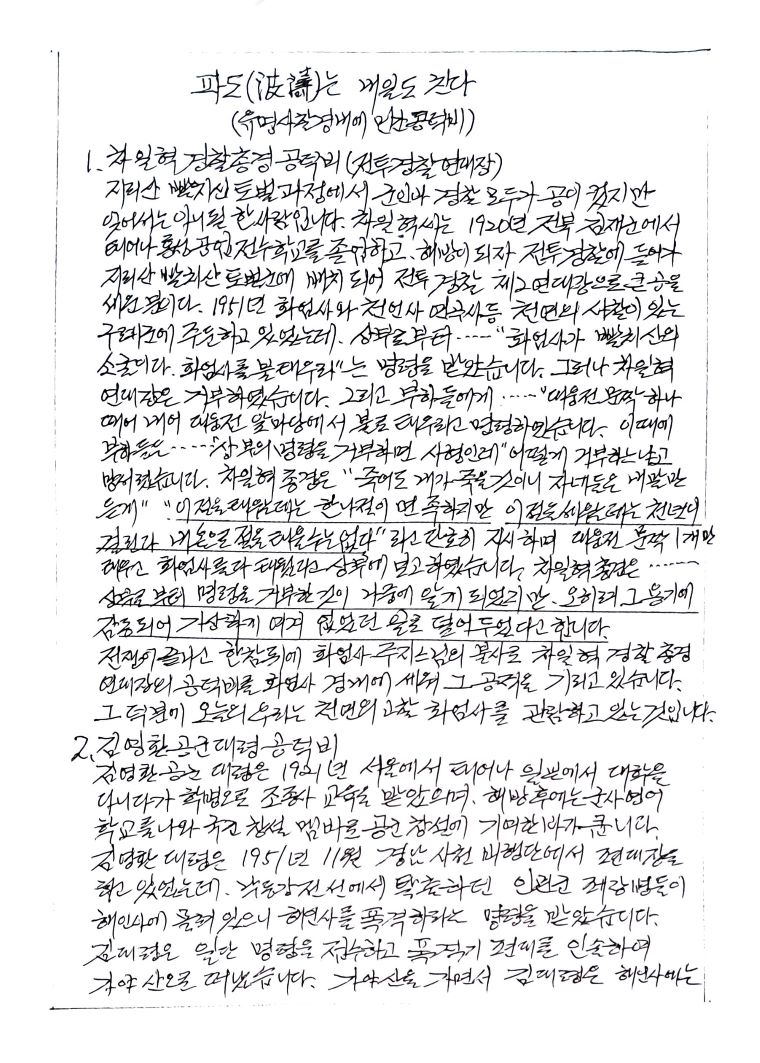 파도(波濤)는 내일도 친다
(유명사찰경내에 민간공덕비)
1. 차일혁 경찰총경 공덕비 (전투경찰연대장)
지리산 빨치산 토벌과정에서 군인과 경찰 모두가 공이 컸지만
잊어서는 아니될 한사람입니다. 차일혁씨는 1920년 전북 김제군에서
태어나 홍성공업전수학교를 졸업하고, 해방이 되자 전투경찰에 들어가
지리산 빨치산 토벌군에 배치되어 전투경찰 제2연대장으로 큰공을
세운분이다. 1951년 화엄사와 천은사 연곡사등 천년의 사찰이 있는
구례군에 주둔하고 있었는데. 상부로부터 ····· "화엄사가 빨치산의
소굴이다. 화엄사를 불태우라"는 명령을 받았습니다. 그러나 차일혁
연대장은 거부하였습니다. 그리고 부하들에게 ····· "대웅전 문짝 하나
떼어 내어 대웅전 앞마당에서 불로 태우라고 명령하였습니다. 이때에
부하들은 ····· "상부의 명령을 거부하면 사형인데" 어떻게 거부하느냐고
망서렸습니다. 차일혁 총경은 "죽어도 내가 죽을것이니 자네들은 내말만
듣게" "이절을 태우는데는 한나절이면 족하지만 이절을 세우는데는 천년이
걸린다 내손으로 절을 태울수는 없다" 라고 단호히 지시하며 대웅전 문짝 1개만
태우고 화엄사를 다 태웠다고 상부에 보고하였습니다. 차일혁총경은 ······
상부로부터 명령을 거부한것이 가중에 알게 되었지만. 오히려 그 용기에
감동되어 가상하게 여겨 없었던 일로 덮어두었다고 합니다.
전쟁이 끝나고 한참뒤에 화엄사 주지스님의 불사로 차일혁 경찰 총경
연대장의 공덕비를 화엄사 경내에 세워 그 공적을 기리고 있습니다.
그 덕분에 오늘의 우리는 천년의 고찰 화엄사를 관람하고 있는것입니다.
2. 김영환 공군대령 공덕비
김영환 공군 대령은 1921년 서울에서 태어나 일본에서 대학을
다니다가 학병으로 조종사 교육을 받았으며. 해방후에는 군사영어
학교를 나와 국군 창설 멤버로 공군 창설에 기여한바가 큽니다.
김영환 대령은 1951년 11월 경남 사천 비행단에서 편대장을
하고 있었는데. 낙동강전선에서 탈출하던 인민군 패잔병들이
해인사에 몰려 있으니 해인사를 폭격하라는 명령을 받았습니다.
김대령은 일단 명령을 접수하고 폭격기 편대를 인솔하여
가야산으로 떠났습니다. 가야산을 가면서 김대령은 해인사에는